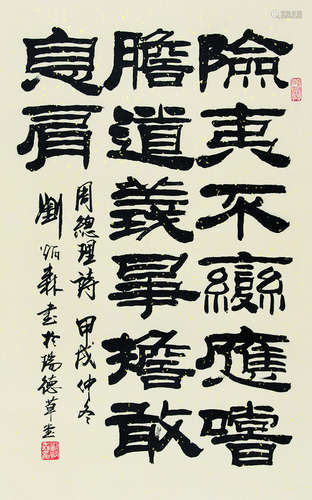 險夷不變應嚐
膽道義爭擔敢
息肩
周總理詩 甲戌仲冬
劉炳森書於瑞德草堂